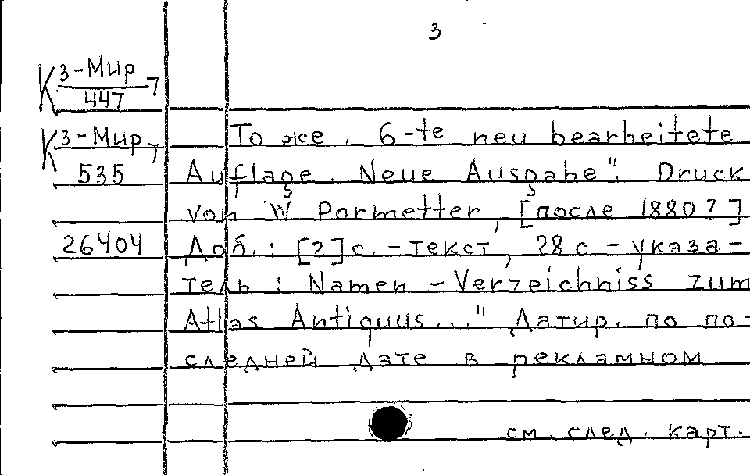 3
К 3-Мир 7
447
К 3-Мир 7
535
26404
То же. 6-te neu bearbeitete
Auflage. Neue Ausgabe". Druck
von W Pormetter, [после 1880?]
Доб.: [2] с. - текст, 28 с - указа-
тель: Namen - Verzeichniss zum
Atlas Antiquus..." Датир. по по-
следней дате в рекламном
см. след. карт.